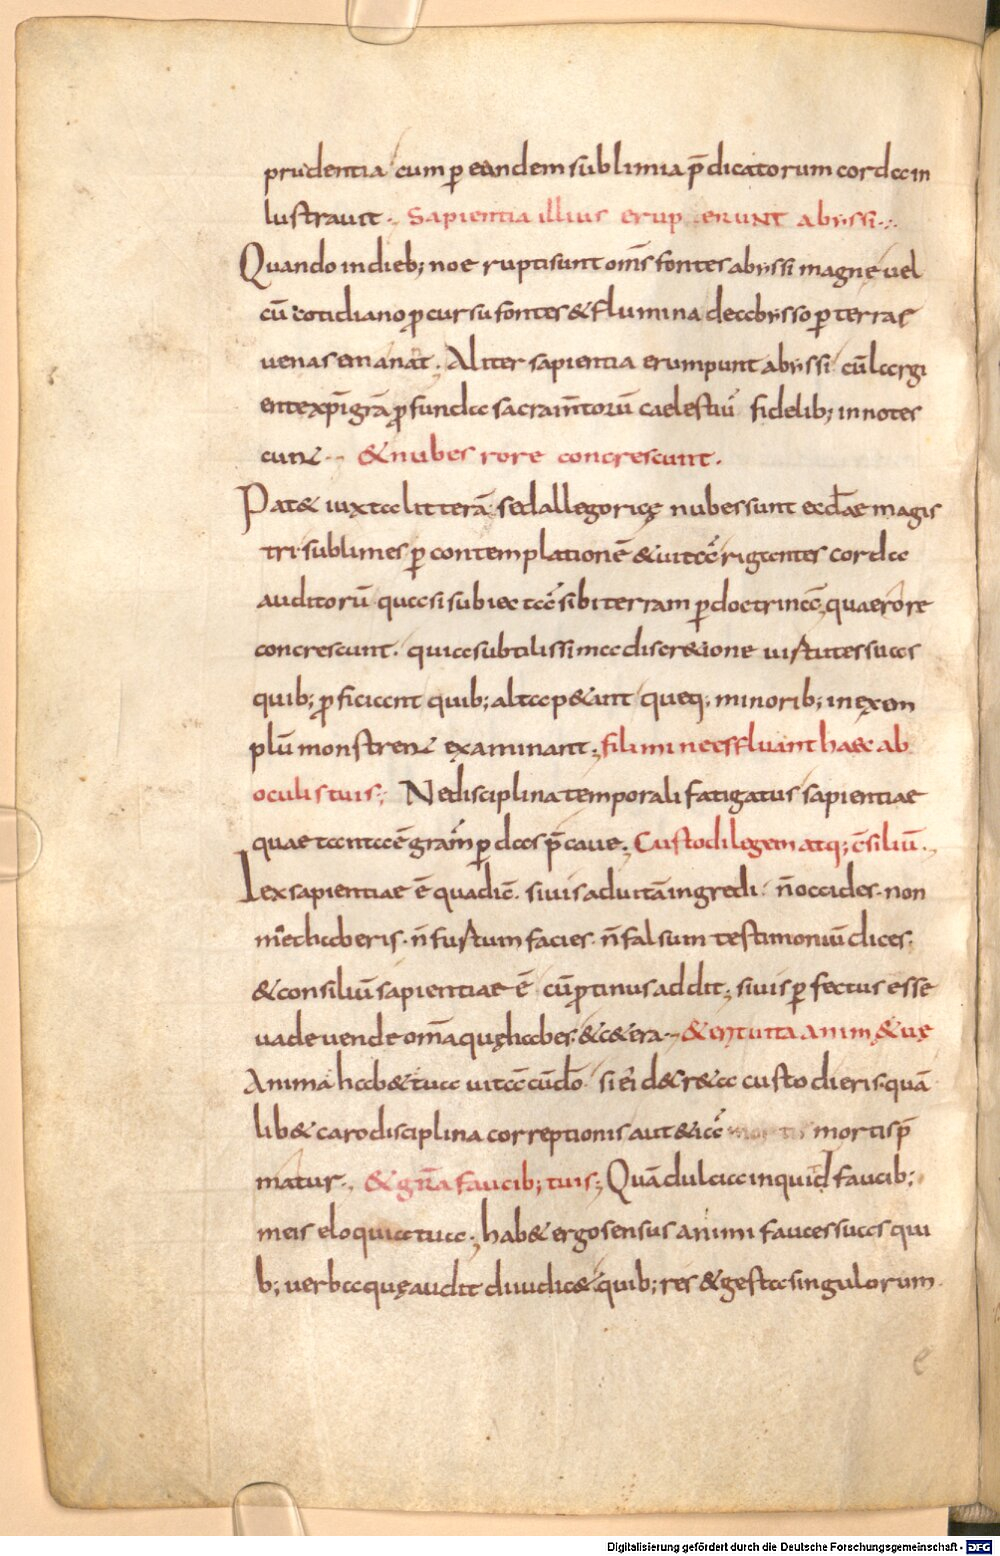 prudentia cum ꝑ eandem sublimia p̄dicatorum corda in
lustrauit. Sapientia illius eruperunt abyssi.
Quando in dieb; noe rupti sunt om̄s fontes abyssi magnę uel
cū cotidiano ꝓcursu fontes & flumina de abysso ꝑ terrae
uenas emanāt. Aliter sapientia erumpunt abyssi cū largi
ente xp̄i grā ꝓfunda sacram̄torū caelestiū fidelib; innotes
cunt. & nubes rore concrescunt.
Pat& iuxta litterā sed allegoricę nubes sunt eccl̄ae magis
tri sublimes ꝑ contemplationē & uitā rigantes corda
auditorū quasi subiectā sibi terram ꝑ doctrinā, quae rore
concrescunt. quia subtilissima discr&ione uirtutes suas
quib; ꝓficiant quib; alta p&ant queq; minorib; in exem
plū monstrent examinant; fili mi ne effluant haec ab
oculis tuis; Ne disciplina temporali fatigatus sapientiae
quae tantā ē gram̄ ꝑdas p̄caue; Custodi legem atq; c̄siliū.
Lex sapientiae ē qua dic̄. si uis ad uitā ingredi n̄ occides. non
mechaberis. n̄ furtum facies. n̄ falsum testimoniū dices.
& consiliū sapientiae ē cū ꝓtinus addit; si uis ꝑfectus esse
uade uende om̄a quę habes. & c&era. & erit uita anim& uę
Anima hab& tua uitā cūdō si ei d&r&a custodieris. quā
lib& caro disciplina correptionis aut &iā mortis p̄
matur., & gr̄a faucib; tuis; Quā dulcia inquid faucib;
meis eloquia tua; hab& ergo sensus animi fauces suas qui
b; uerba quę audit diiudic& quib; res & gesta singulorum